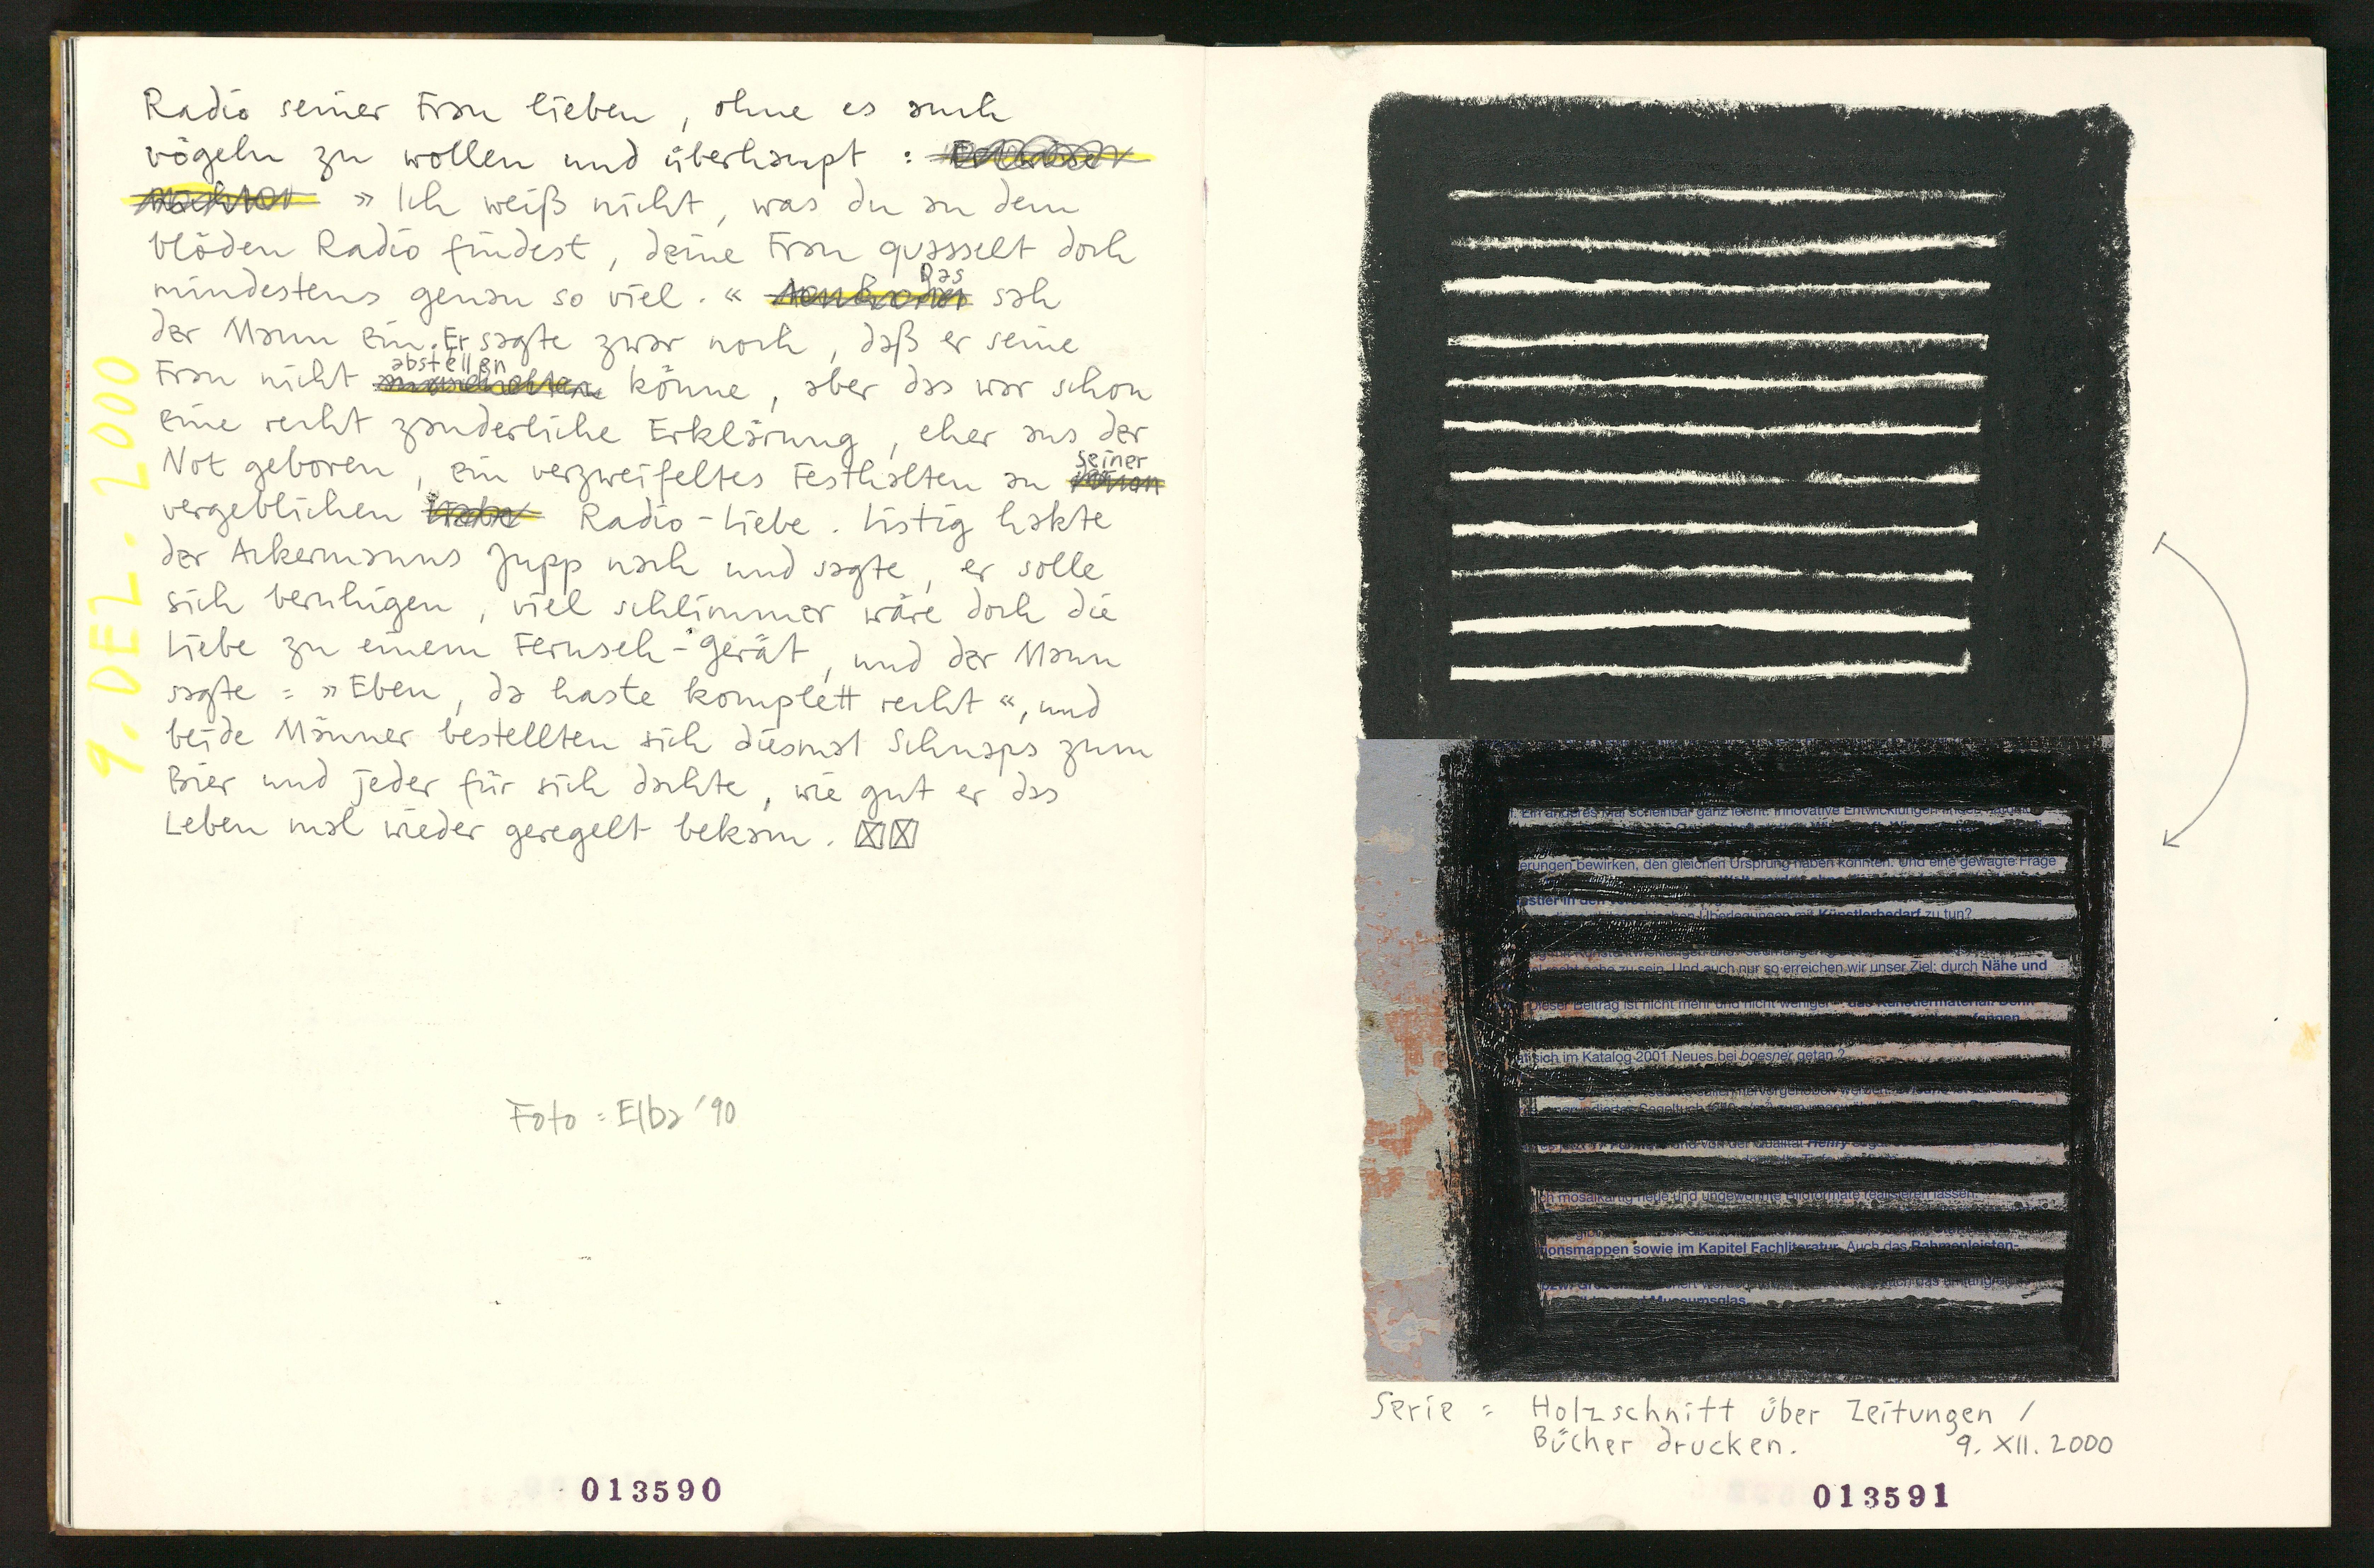 Radio seiner Frau lieben, ohne es auch
vögeln zu wollen und überhaupt :
» Ich weiß nicht, was du an dem
blöden Radio findest, deine Frau quasselt doch
mindestens genau so viel. « Das sah
der Mann ein. Er sagte zwar noch, daß er seine
Frau nicht abstellen könne, aber das war schon
eine recht zauderliche Erklärung, eher aus der
Not geboren, ein verzweifeltes Festhalten an seiner
vergeblichen Radio-Liebe. Listig hakte
der Ackermanns Jupp nach und sagte, er solle
sich beruhigen, viel schlimmer wäre doch die
Liebe zu einem Fernseh-Gerät, und der Mann
sagte : »Eben, da haste komplett recht«, und
beide Männer bestellten sich diesmal Schnaps zum
Bier und jeder für sich dachte, wie gut er das
Leben mal wieder geregelt bekam.
9. DEZ. 2000
Foto : Elba '90
013590
Ein anderes Mal scheinbar ganz leicht. Innovative Entwicklungen
erungen bewirken, den gleichen Ursprung haben könnten. Und eine gewagte Frage
Überlegungen mit Künstlerbedarf zu tun?
nahe zu sein. Und auch nur so erreichen wir unser Ziel: durch Nähe und
Dieser Beitrag ist nicht mehr und nicht weniger das Künstlermaterial. Denn
sich im Katalog 2001 Neues bei boesner getan ?
und von der Qualität Henry
mosaikartig neue und ungewohnte Bildformate realisieren lassen.
ionsmappen sowie im Kapitel Fachliteratur. Auch das Rahmenleisten-
Museumsglas.
Serie : Holzschnitt über Zeitungen /
Bücher drucken. 9. XII. 2000
013591